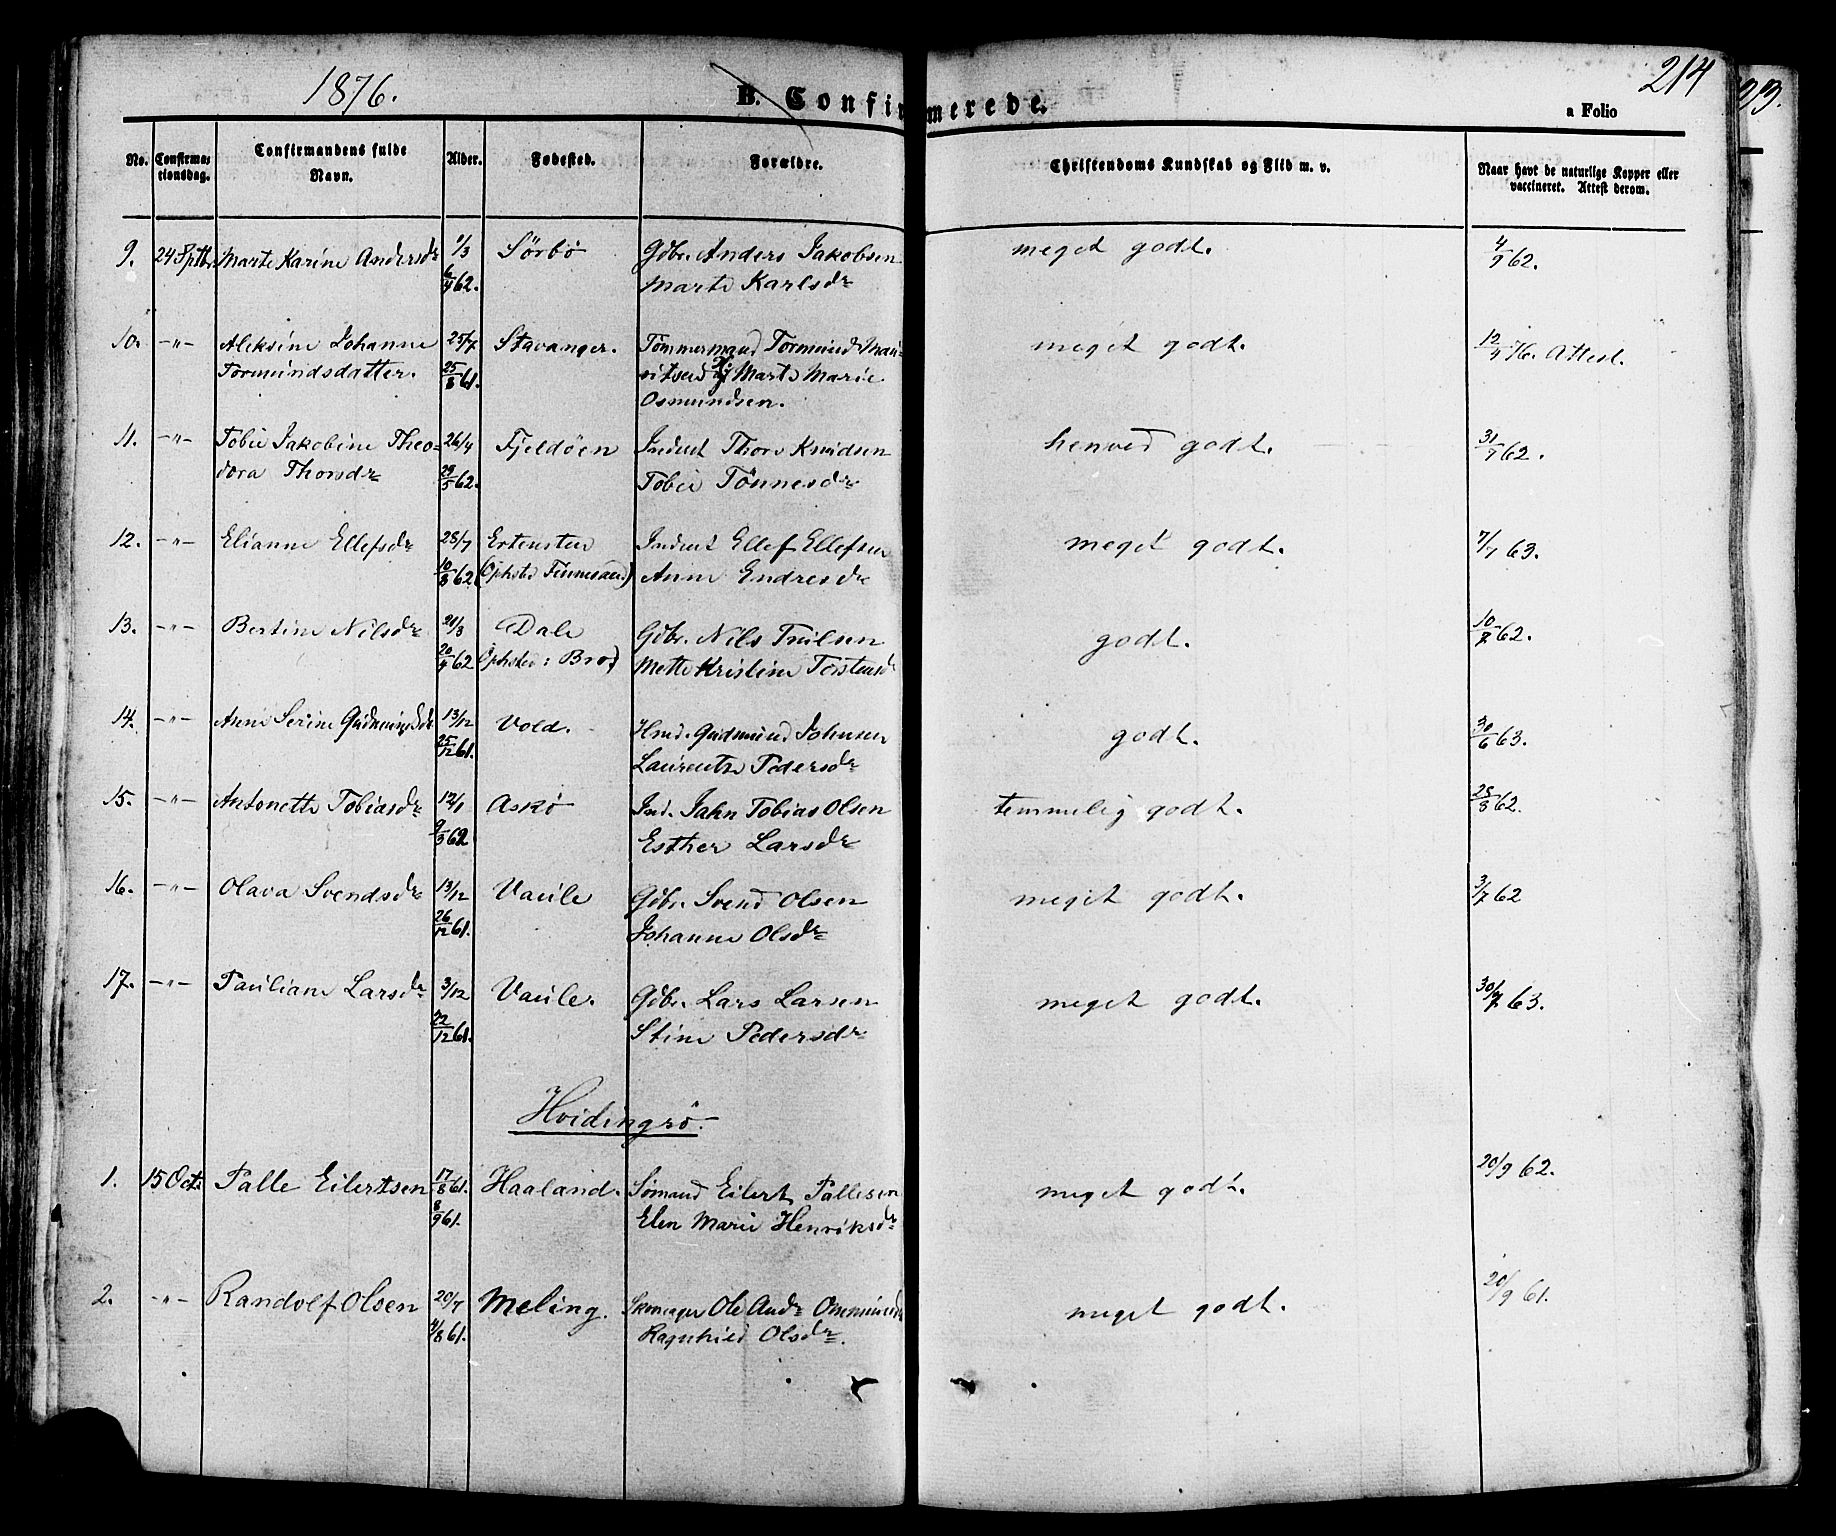 1876. B. Confirmerede. a Folio 214
No. Confirma- Confirmandens fulde Alder. Fødested. Forældre. Christendoms Kundskab og Flid m. v. Naar havt de naturlige Kopper eller
tionsdag. Navn. vaccineret. Attest derom.
9. 24 Septbr Marte Karine Andersdr 1/3 Sörbö Gdbr. Anders Jakobsen meget godt. 4/9 62.
6/4 62. Marte Karlsdr
10. -"- Aleksine Johanne 25/7 Stavanger. Tömmermand Tormund Mau- meget godt. 12/9 76. Attest.
Tormundsdatter. 25/8 61. ritsen Marte Marie
Osmundsen.
11. -"- Tobie Jakobine Theo- 26/4 Fjeldöen Inderst Thore Knudsen henved godt. 31/7 62.
dora Thorsdr 29/5 62. Tobie Tönnesdr
12. -"- Elianne Ellefsdr 28/7 Ertensten Inderst Ellef Ellefsen meget godt. 7/7 63.
10/8 62 (Ophsted Finnesand) Anne Endresdr
13. -"- Bertine Nilsdr 21/3 Dale Gdbr. Nils Trulsen godt. 10/7 62.
20/4 62 (Ophsted: Brod) Mette Kristine Torstensdr
14. -"- Anne Serine Gudmundsdr 13/12 Vold. Hmd. Gudmund Johnsen godt. 30/6 63.
25/12 61. Laurentse Pedersdr
15. -"- Antonette Tobiasdr 12/1 Askö Ind. Jahn Tobias Olsen temmelig godt. 28/8 62.
9/3 62 Esther Larsdr
16. -"- Olava Svendsdr 13/12 Vaule Gdbr. Svend Olsen meget godt. 3/7 62
26/12 61. Johanne Olsdr
17. -"- Pauliane Larsdr 3/12 Vaule. Gdbr. Lars Larsen meget godt. 30/7 63.
22/12 61. Stine Pedersdr
Hvidingsö.
1. 15 Octr Palle Eilertsen 17/8 61. Haaland. Sömand Eilert Pallesen meget godt. 20/9 62.
8/9 61. Elen Marie Henriksdr
2. -"- Randolf Olsen 20/7 Meling. Skomager Ole Andr Ommundsen meget godt. 20/9 61.
4/8 61. Ragnhild Olsdr.